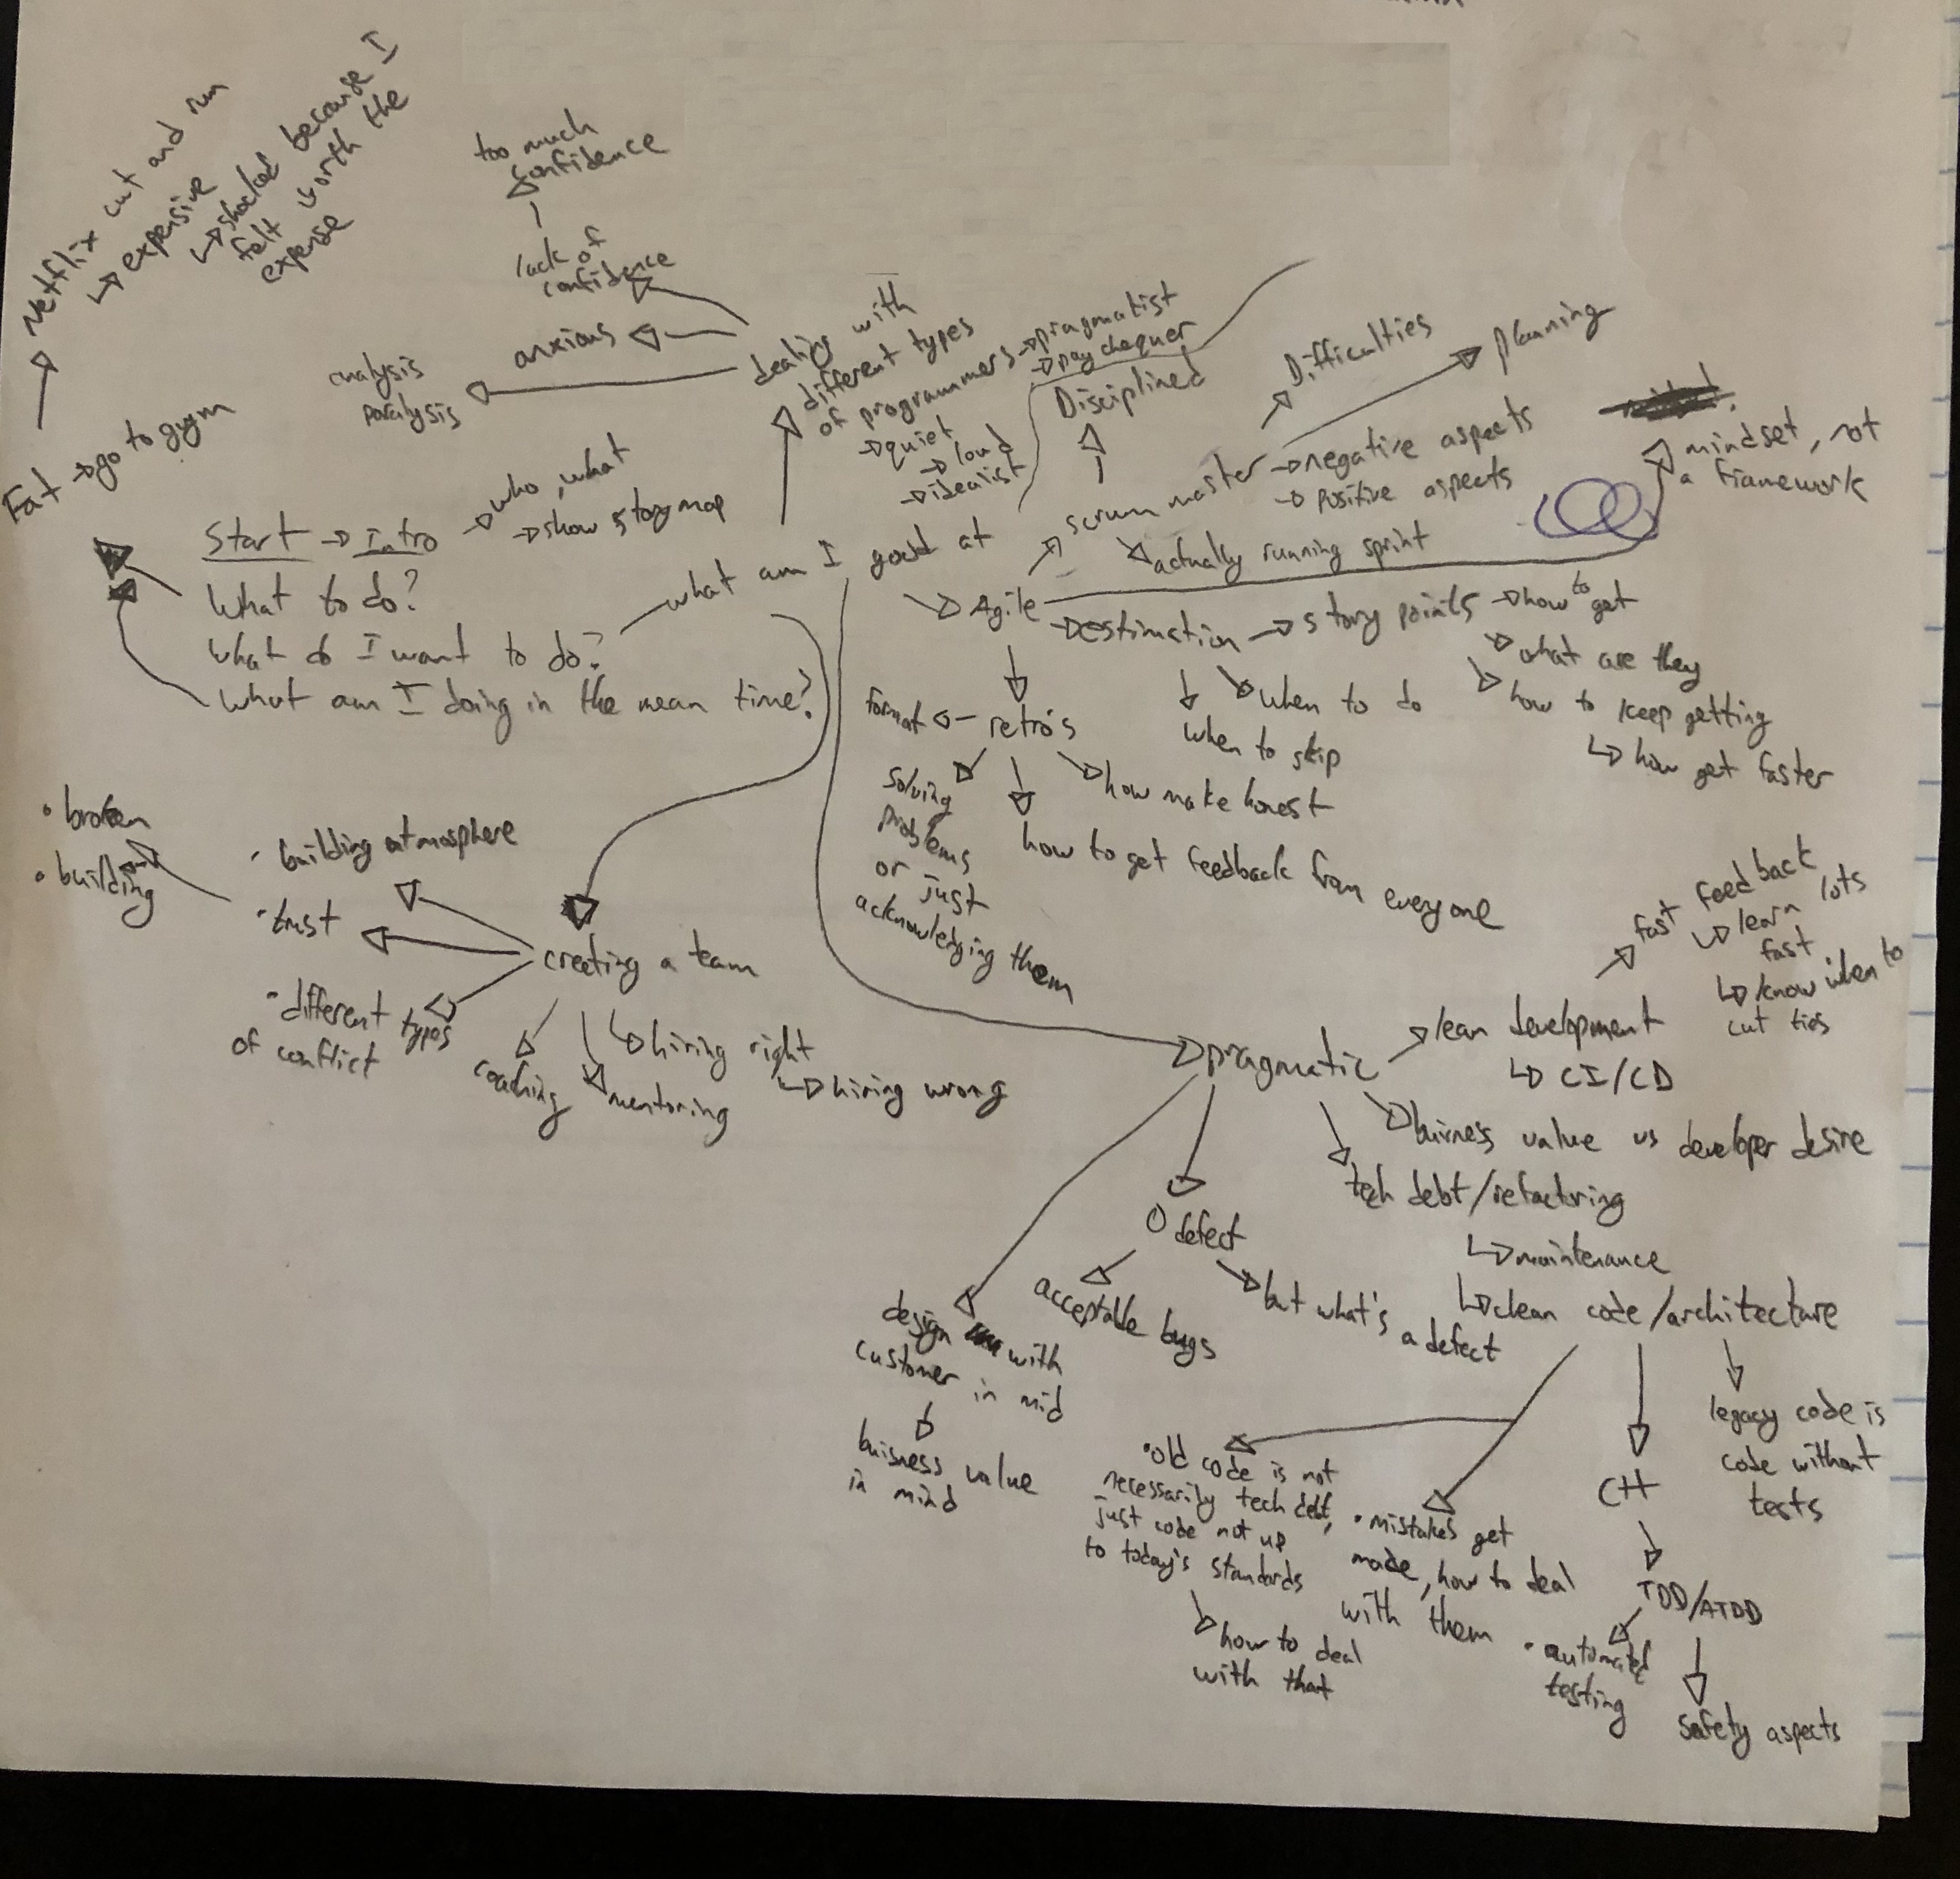 Netflix cut and run
↳ expensive
↳ shocked because I
felt worth the
expense
Fat → go to gym
too much
confidence
lack of
confidence
anxious
analysis
paralysis
dealing with
different types
of programmers → pragmatist
→ pay chequer
→ quiet
→ loud
→ idealist
Disciplined
Difficulties
planning
scrum master → negative aspects
→ positive aspects
actually running sprint
mindset, not
a framework
Start → Intro → who, what
→ show story map
What to do?
What do I want to do?
What am I doing in the mean time?
what am I good at
Agile → estimation → story points → how to get
what are they
how to keep getting
↳ how get faster
when to do
when to skip
format ← retro's
solving
problems
or just
acknowledging them
how make honest
how to get feedback from everyone
• broken
• building
• building atmosphere
• trust
creating a team
• different types
of conflict
coaching
mentoring
hiring right
↳ hiring wrong
pragmatic
lean development
↳ CI/CD
fast feedback
↳ learn lots
fast
↳ know when to
cut ties
buirness value vs developer desire
tech debt/refactoring
↳ maintenance
↳ clean code/architecture
0 defect
acceptable bugs
but what's
a defect
design with
customer in mid
buisness value
in mind
• old code is not
necessarily tech debt,
just code not up
to today's standards
how to deal
with that
• mistakes get
made, how to deal
with them
legacy code is
code without
tests
C++
TDD/ATDD
• automated
testing
Safety aspects